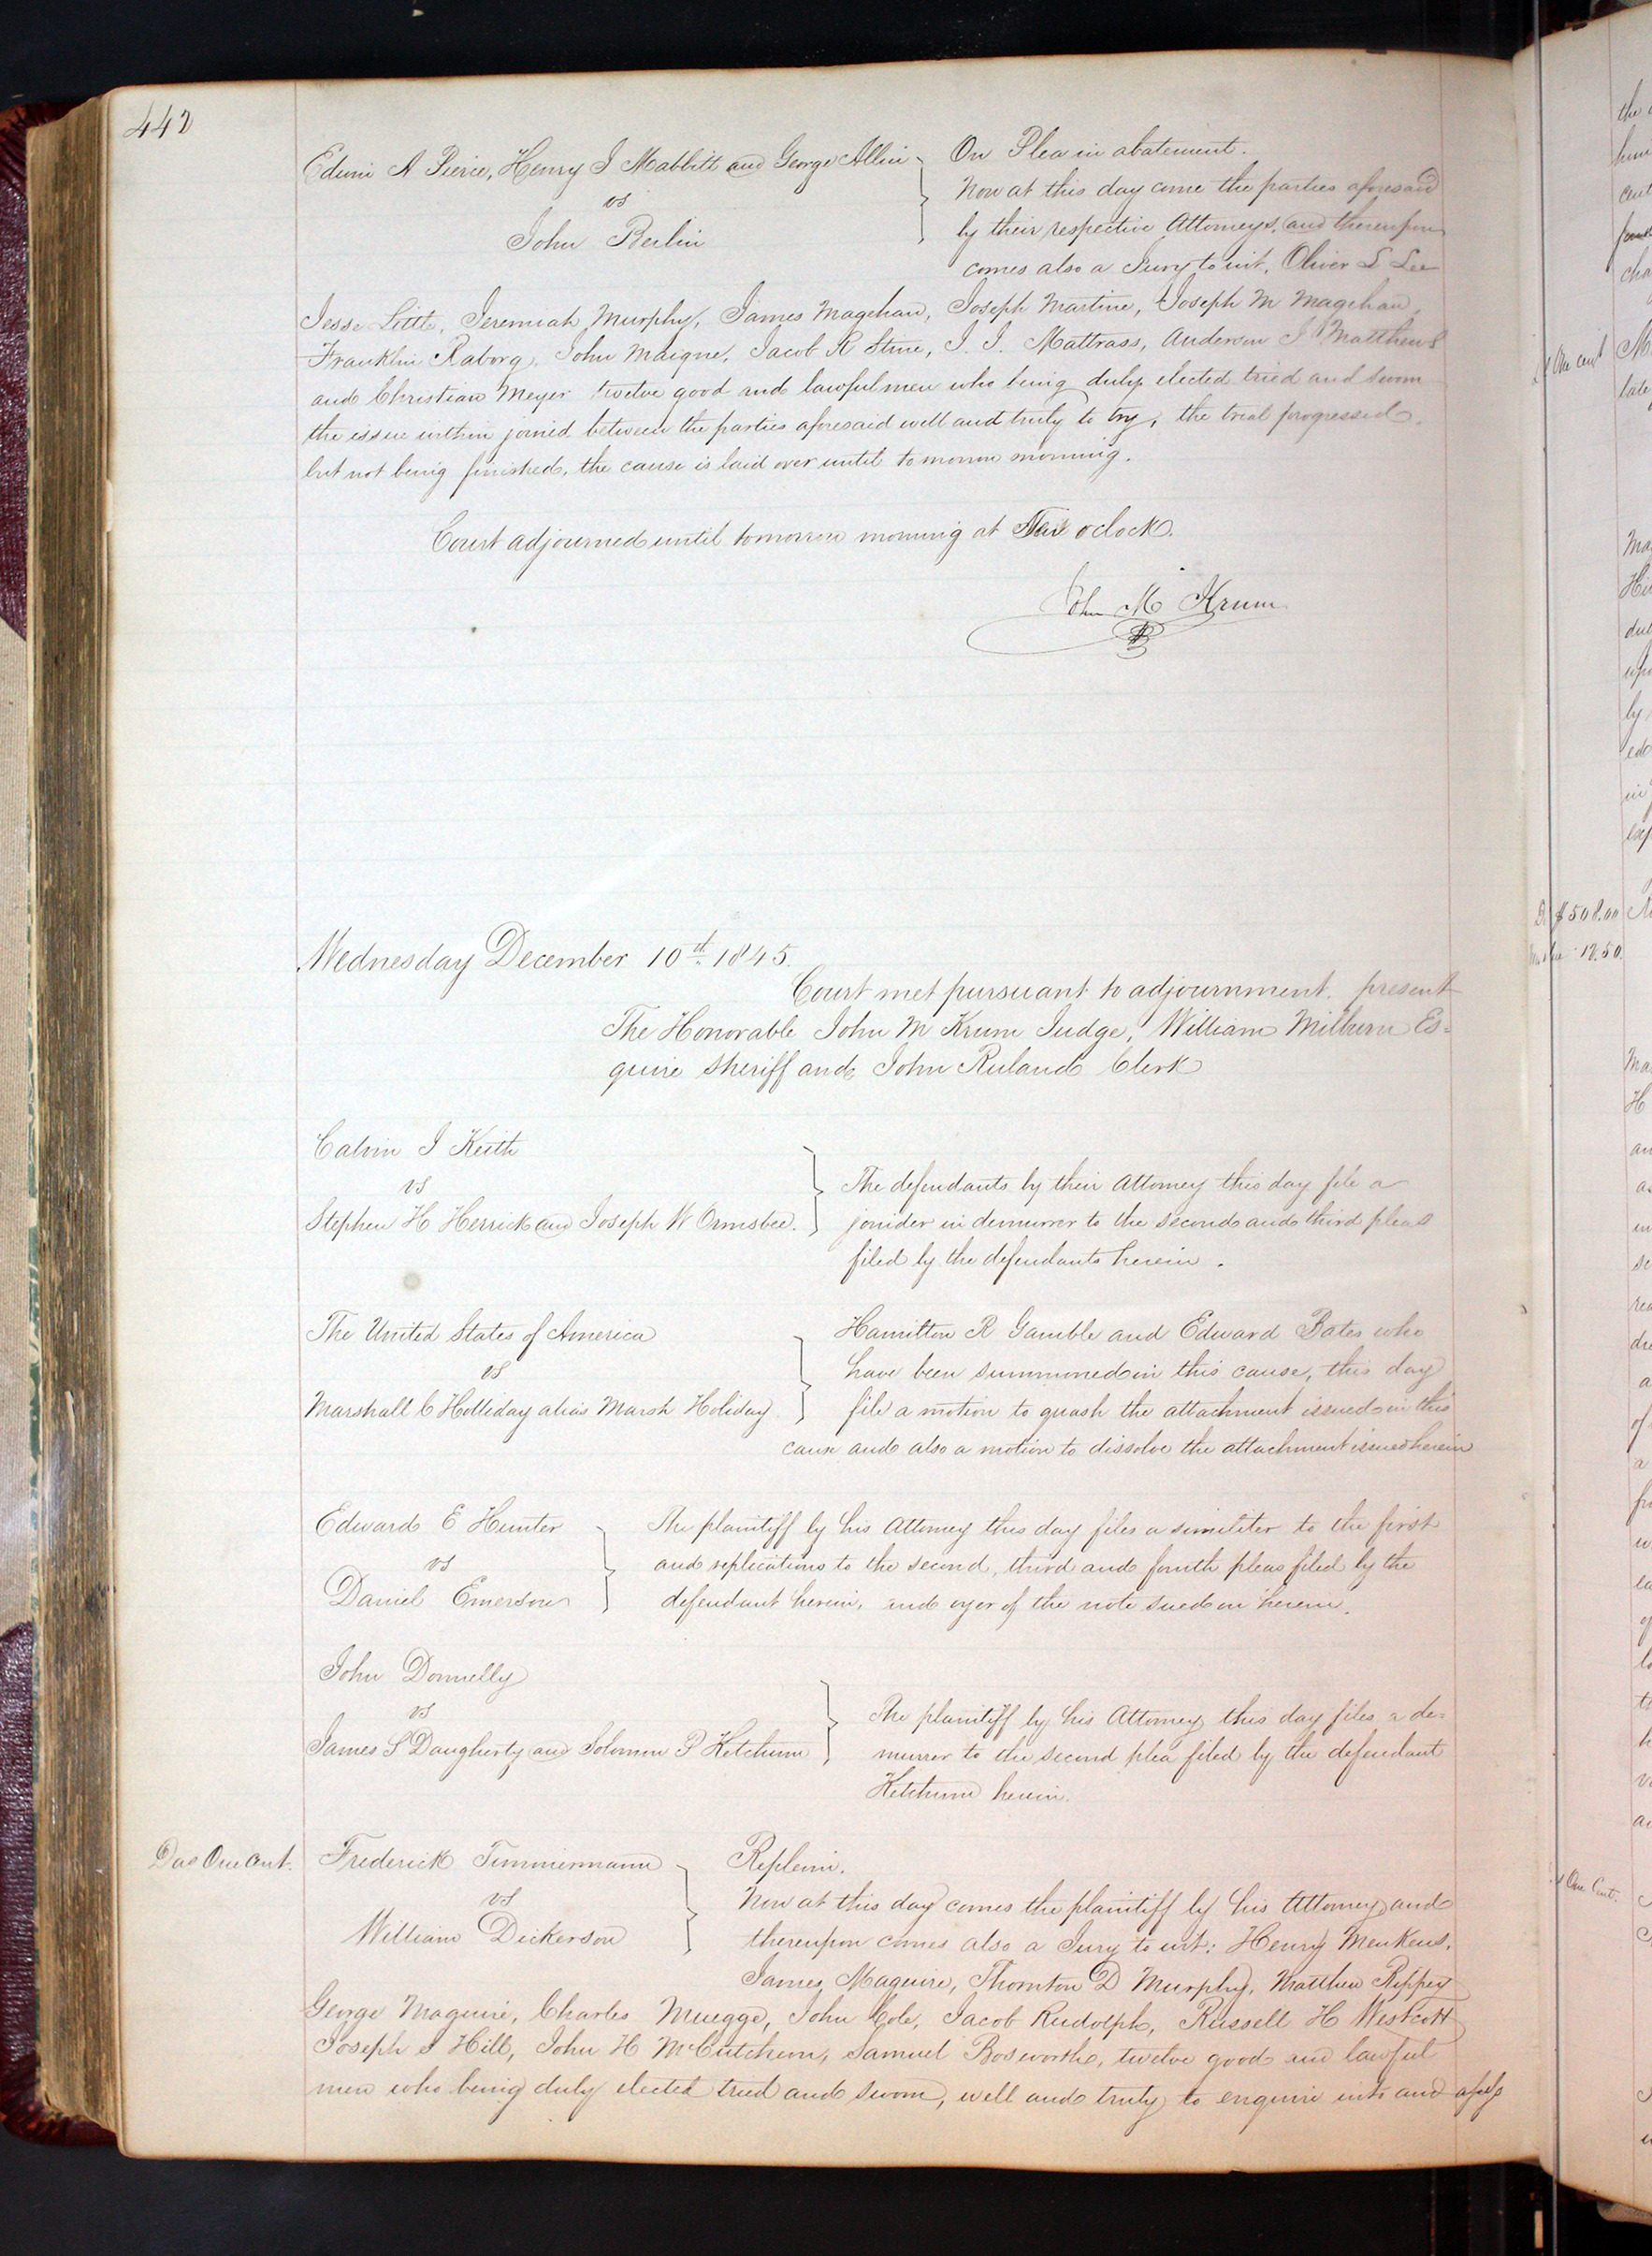 442
Edwin A Pierce, Henry J Mabbitt and George Allin
vs
John Berlin
On Plea in abatement.
Now at this day come the parties aforesaid
by their respective Attorneys, and thereupon
comes also a Jury to wit, Oliver L Lee
Jesse Little, Jeremiah Murphy, James Magehan, Joseph Martine, Joseph M Magehan,
Franklin Raborg, John Maigne, Jacob R Stine, J. J. Mattrass, Anderson J Matthews
and Christian Meyer twelve good and lawful men who being duly elected tried and sworn
the issue within joined between the parties aforesaid well and truly to try, the trial progressed
but not being finished, the cause is laid over until tomorrow morning.
Court adjourned until tomorrow morning at Ten oclock.
John M Krum
Wednesday December 10th 1845.
Court met pursuant to adjournment. present
The Honorable John M Krum Judge, William Milburn Es=
quire Sheriff and John Ruland Clerk
Calvin J Keith
vs
Stephen H Herrick and Joseph W Ormsbee.
The defendants by their Attorney this day file a
joinder in demurrer to the second and third pleas
filed by the defendants herein.
The United States of America
vs
Marshall C Holliday alias Marsh Holiday
Hamilton R Gamble and Edward Bates who
have been summoned in this cause, this day
file a motion to quash the attachment issued in this
cause and also a motion to dissolve the attachment issued herein
Edward E Hunter
vs
Daniel Emerson
The plaintiff by his Attorney this day files a similiter to the first
and replications to the second, third and fourth pleas filed by the
defendant herein, and oyer of the note sued on herein.
John Donnelly
vs
James S Daugherty and Solomon P Ketchum
The plaintiff by his Attorney this day files a de=
murrer to the second plea filed by the defendant
Ketchum herein.
Das One Cent.
Frederick Timmermann
vs
William Dickerson
Replevin.
Now at this day comes the plaintiff by his Attorney and
thereupon comes also a Jury to wit: Henry Menkens,
James Maguire, Thornton D Murphy, Matthew Rippey
George Maguire, Charles Muegge, John Cole, Jacob Rudolph, Russell H Westcott
Joseph S Hill, John H McCutchen, Samuel Bosworth, twelve good and lawful
men who being duly elected tried and sworn, well and truly to enquire into and assess
$508.00
12.50
One Cent